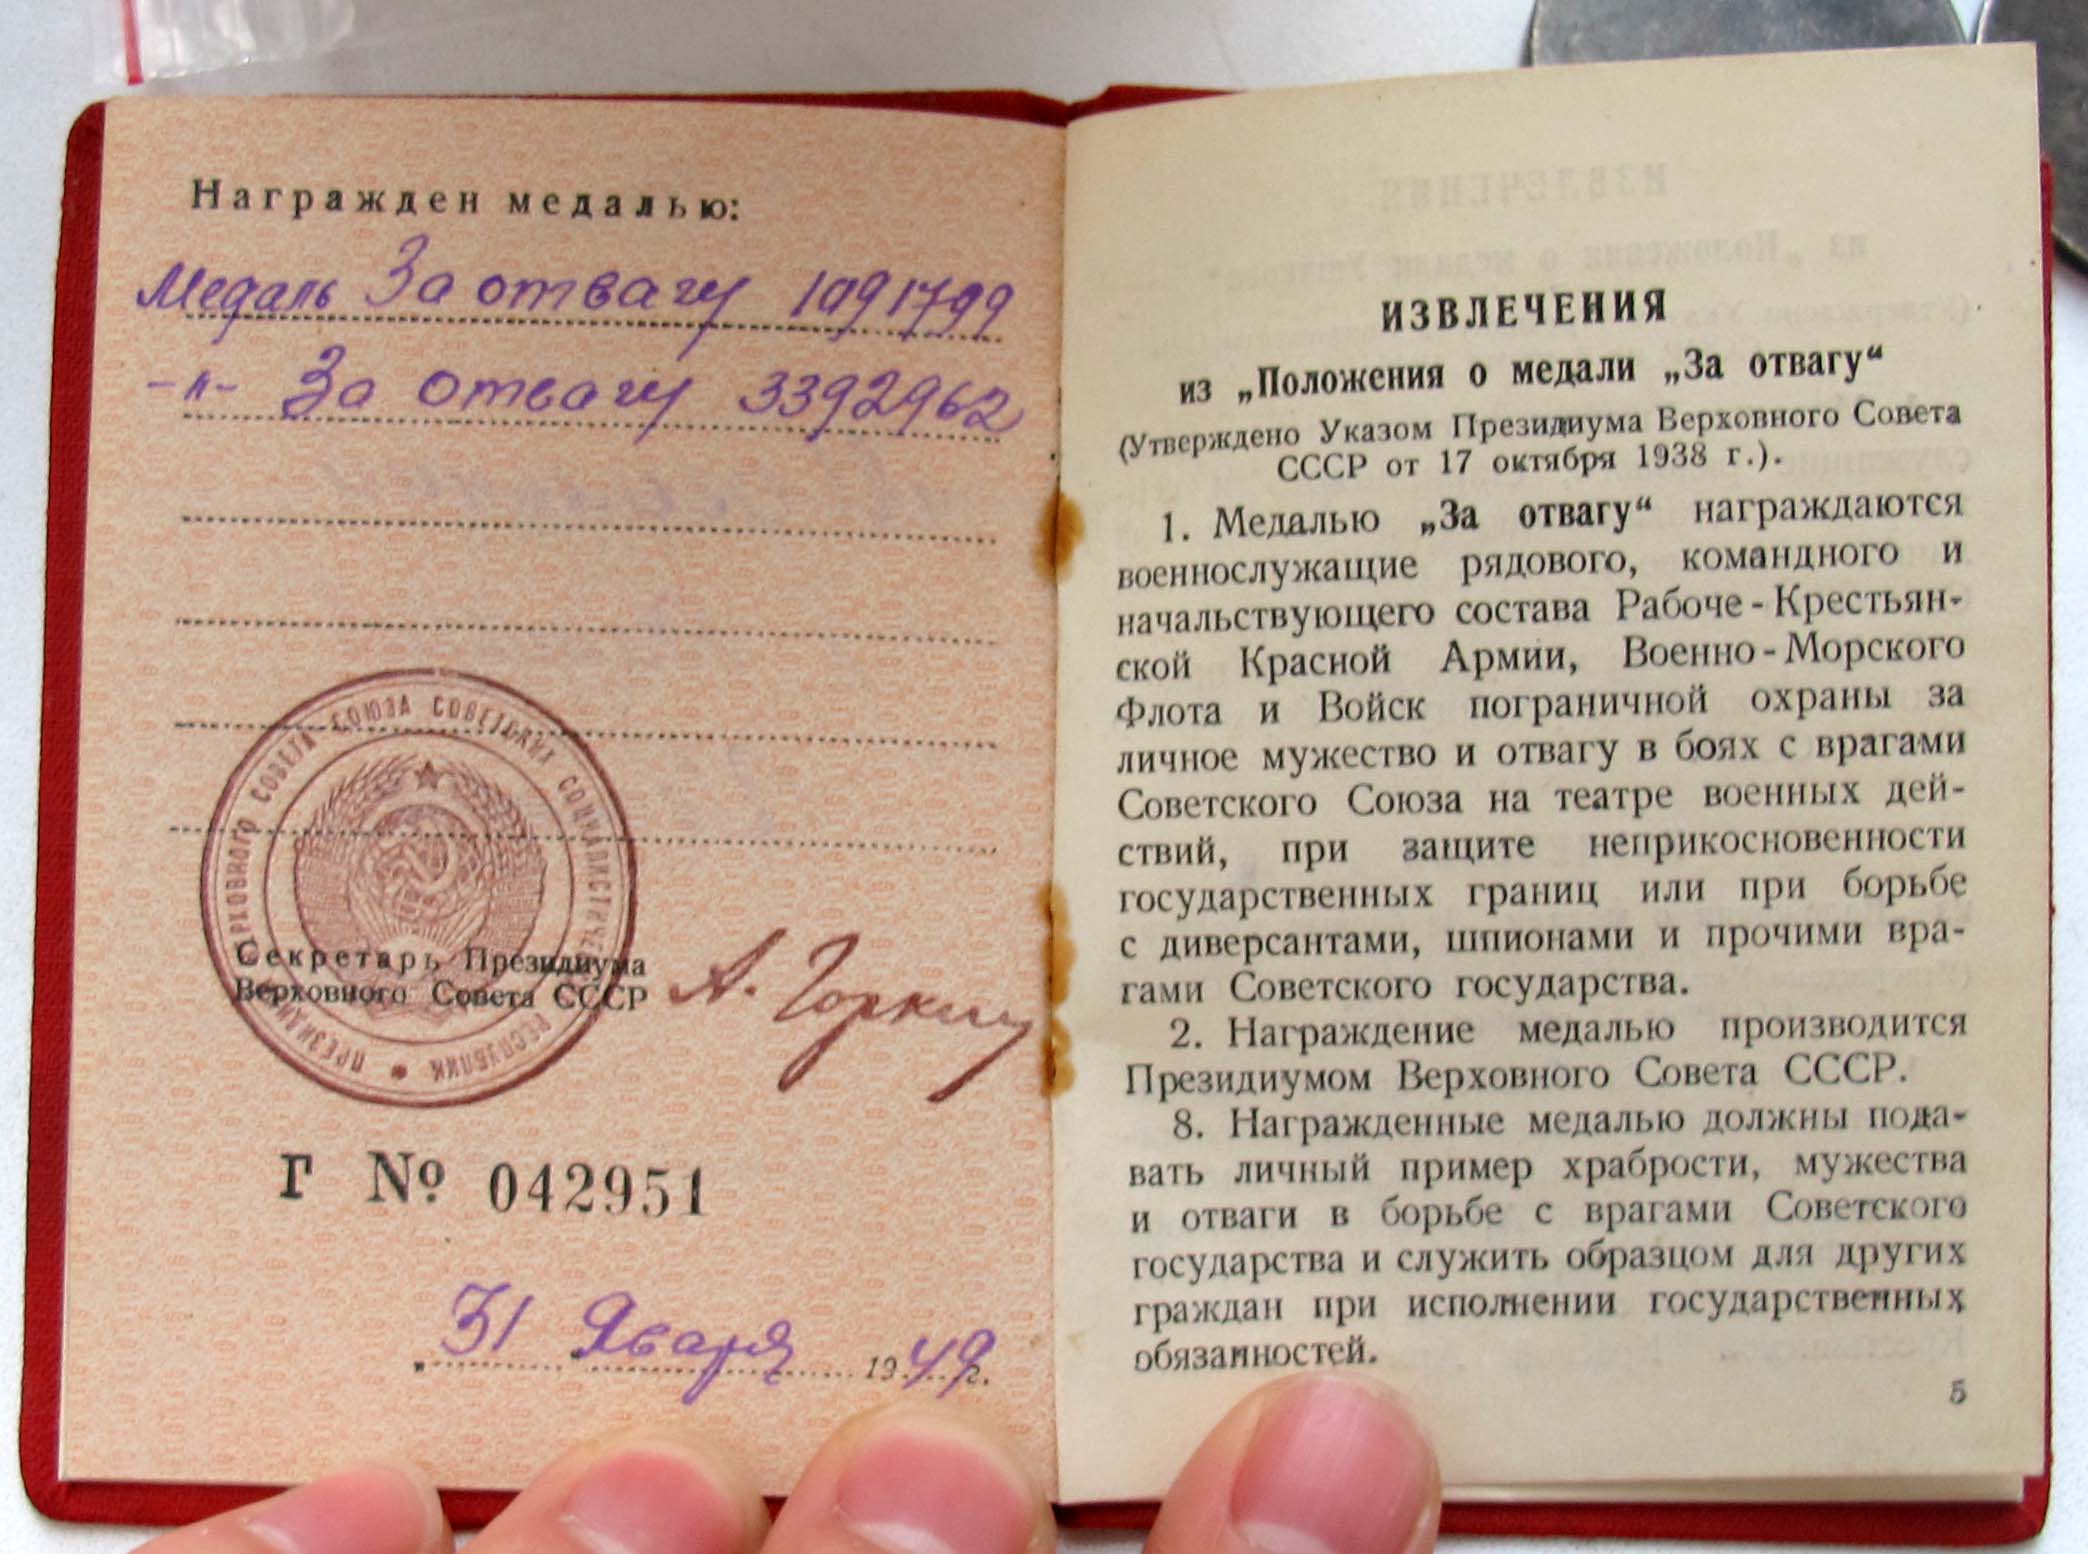 Награжден медалью:
Медаль За отвагу 1091799
-"- За отвагу 3392962
ПРЕЗИДИУМ ВЕРХОВНОГО СОВЕТА СОЮЗА СОВЕТСКИХ СОЦИАЛИСТИЧЕСКИХ РЕСПУБЛИК
Секретарь Президиума
Верховного Совета СССР
А. Горкин
Г № 042951
„31 Января 1949 г.
ИЗВЛЕЧЕНИЯ
из „Положения о медали „За отвагу“
(Утверждено Указом Президиума Верховного Совета
СССР от 17 октября 1938 г.).
1. Медалью „За отвагу“ награждаются
военнослужащие рядового, командного и
начальствующего состава Рабоче-Крестьян-
ской Красной Армии, Военно-Морского
Флота и Войск пограничной охраны за
личное мужество и отвагу в боях с врагами
Советского Союза на театре военных дей-
ствий, при защите неприкосновенности
государственных границ или при борьбе
с диверсантами, шпионами и прочими вра-
гами Советского государства.
2. Награждение медалью производится
Президиумом Верховного Совета СССР.
8. Награжденные медалью должны пода-
вать личный пример храбрости, мужества
и отваги в борьбе с врагами Советского
государства и служить образцом для других
граждан при исполнении государственных
обязанностей.
5